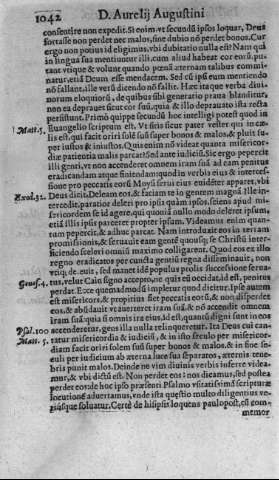 1042 D. Aurelij Augustini
consentire non expedit. Si enim vt secundũ ipsos loquar, Deus
fortasse non perdet nec malos, sine dubio nõ perdet bonos. Cur
ergo non potius id eligimus, vbi dubitatio nulla est? Nam quod
in lingua sua mentiuntur illi, cum aliud habeat cor eorũ, pu-
tant veique & volunt quando pensũ æternam talibus commi-
natur, etiã Deum esse mendacem. Sed cũ ipsi eum mentiendo
nõ fallant, ille verũ dicendo nõ fallit. Hæc itaque verba diui-
norum eloquiorũ, de quibus illis generatio praua blanditur,
non ea deprauet sicut cor suũ, quia & illo deprauato ista recta
persistunt. Primò quippe secundũ hoc intelligi potest quod in
Matt. 5. Euangelio scriptum est. Vt sitis sicut pater vester qui in cæ-
lis est: qui facit oriri solẽ suũ super bonos & malos, & pluit su-
per iustos & iniustos. Quis enim nõ videat quanta misericor-
diæ patientia malis parcat? Sed ante iudiciũ. Sic ergo pepercit
illi genti, vt non accenderet omnem iram suã ad eam penitus
eradicandam atque finiendam: quod in verbis eius & interces-
sione pro peccatis eorũ Moysi serui eius euidẽter apparet, vbi
Exod. 32. Deus dicit, Deleam eos, & faciam te in gentem magnã. Ille in-
tercedit, paratior deleri pro ipsis quàm ipsos, sciens apud mi-
sericordem se id agere, qui quoniã nullo modo deleret ipsum,
etiã illis ipsis parceret propter ipsum. Videamus enim quan-
tum pepercit, & adhuc parcat. Nam introduxit eos in terram
promissionis, & seruauit eam gentẽ quousque Christũ inter-
ficiendo sceleri omniũ maximo colligarent. Quod eos et illo
regno eradicatos per cuncta gentiũ regna disseminauit, non
vtique deleuit, sed manet idẽ populus prolis successione serua-
Genes. 4. tus, velut Cain signo accepto, ne quis eũ occidat, id est, penitus
perdat. Ecce quemadmodũ impletur quod dicitur, Ipse autem
est misericors, & propitius fiet peccatis eorũ, & non disperdet
eos, & abundauit vt auerteret iram suã, & nõ accendit omnem
iram suã. quia si omnis ira eius, id est, quantũ digni sunt in eos
Psal. 100. accenderetur, gens illa nulla relinqueretur. Ita Deus cui can-
Matt. 5. tatur misericordia & iudiciũ, & in isto seculo per misericor-
diam facit oriri solem suũ super bonos & malos, & in fine se-
culi per iudicium ab æterna luce sua separatos, æternis tene-
bris punit malos. Deinde ne vim diuinis verbis inferre videa-
mur, & vbi dictũ est, Non perdet eos: nos dicamus, sed postea
perdet eos: de hoc ipso præsenti Psalmo vsitatissimã scripturæ
locutionẽ aduertamus, vnde ista quæstio multo diligentius ve-
riúsque soluatur. Certè de his ipsis loquens paulo post, cũ com-
memor